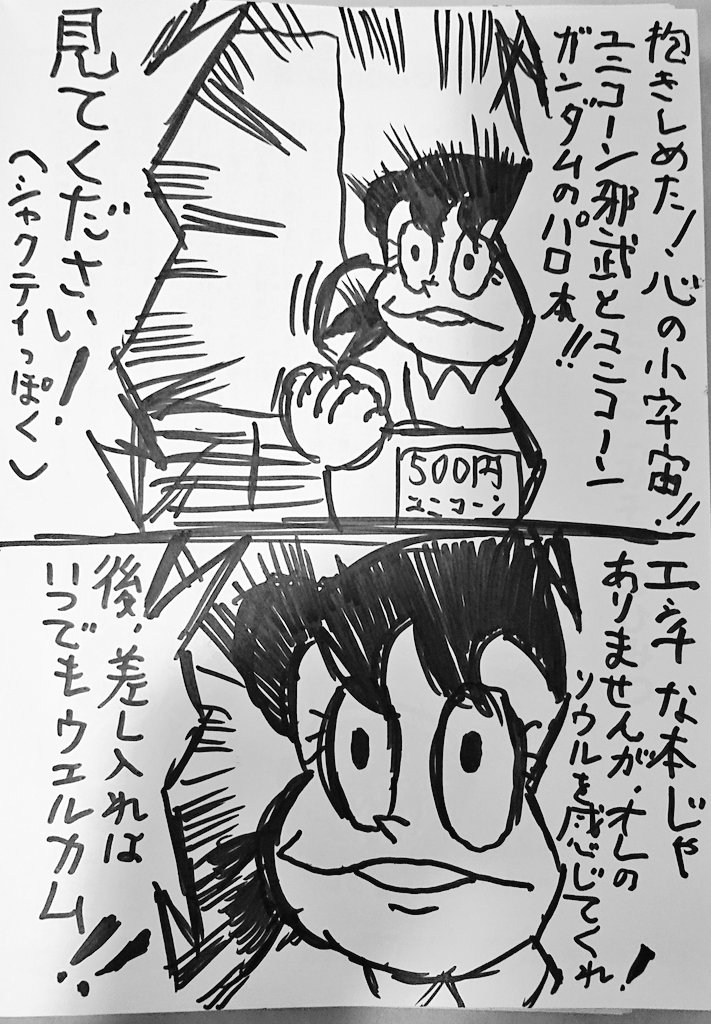 抱きしめた!心の小宇宙!!
ユニコーン邪武とユニコーン
ガンダムのパロ本!!
500円
ユニコーン
見てください!
(シャクティっぽく)
エッチな本じゃ
ありませんが、オレの
ソウルを感じてくれ!
後、差し入れは
いつでもウェルカム!!